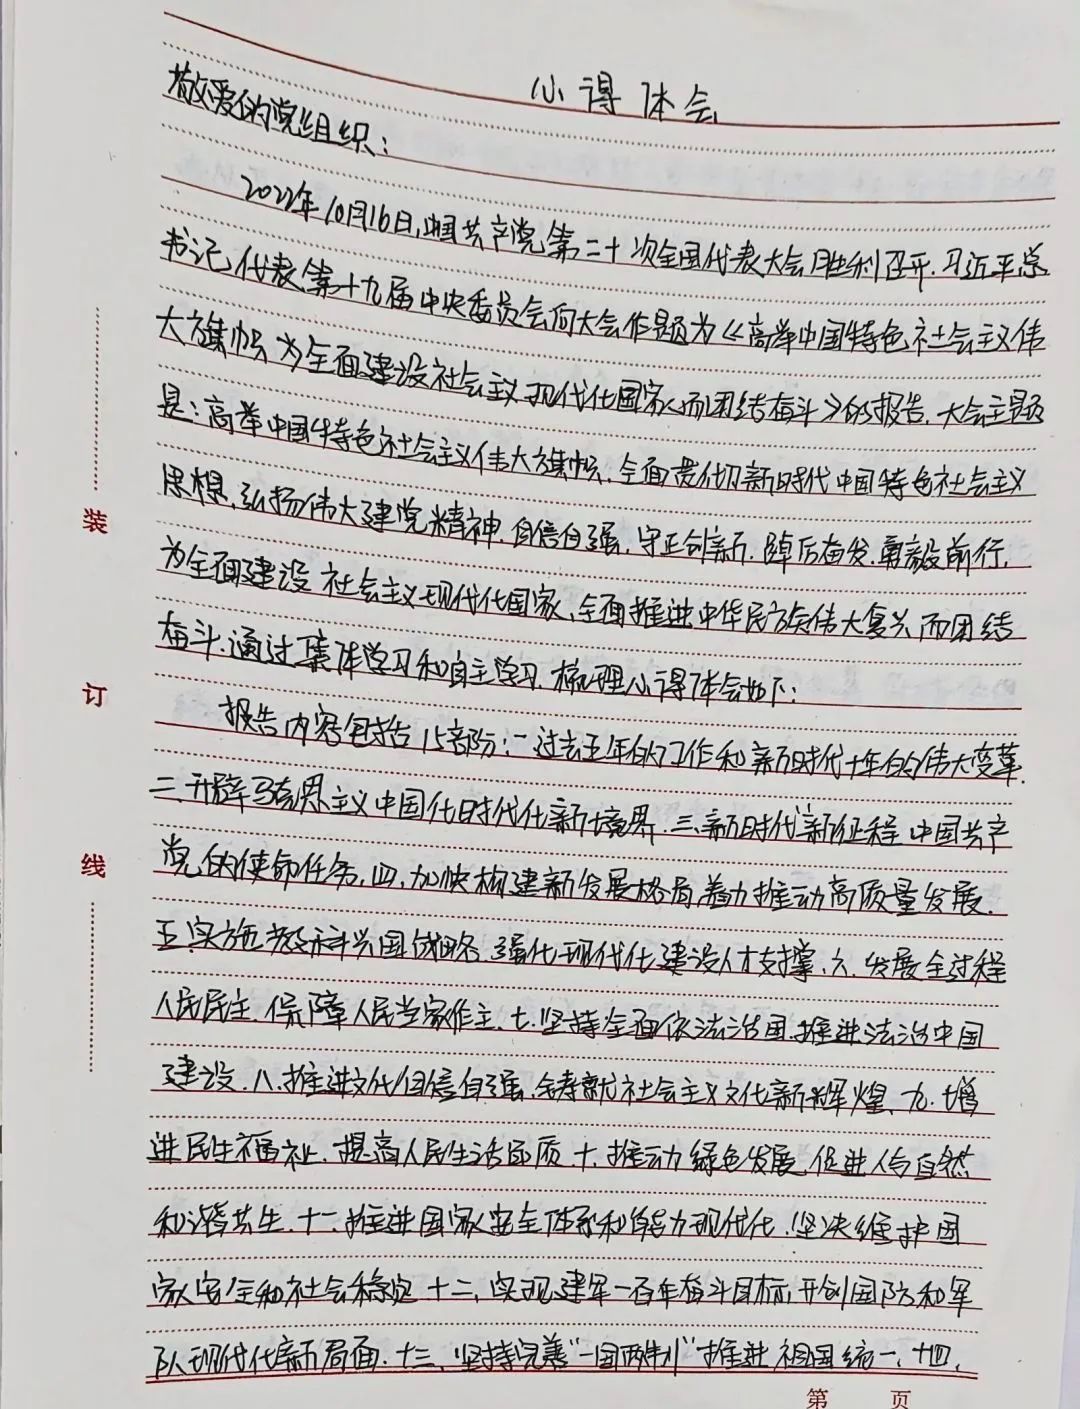 心得体会
敬爱的党组织：
2022年10月16日，中国共产党第二十次全国代表大会胜利召开，习近平总
书记代表第十九届中央委员会向大会作题为《高举中国特色社会主义伟
大旗帜 为全面建设社会主义现代化国家而团结奋斗》的报告，大会主题
是：高举中国特色社会主义伟大旗帜，全面贯彻新时代中国特色社会主义
思想，弘扬伟大建党精神，自信自强，守正创新，踔厉奋发，勇毅前行，
为全面建设社会主义现代化国家、全面推进中华民族伟大复兴而团结
奋斗，通过集体学习和自主学习，梳理心得体会如下：
报告内容包括15部分：一过去五年的工作和新时代十年的伟大变革.
二、开辟马克思主义中国化时代化新境界.三、新时代新征程中国共产
党的使命任务，四、加快构建新发展格局，着力推动高质量发展.
五、实施科教兴国战略，强化现代化建设人才支撑、六、发展全过程
人民民主，保障人民当家作主、七、坚持全面依法治国，推进法治中国
建设、八、推进文化自信自强，铸就社会主义文化新辉煌、九、增
进民生福祉，提高人民生活品质、十、推动绿色发展，促进人与自然
和谐共生、十一、推进国家安全体系和能力现代化，坚决维护国
家安全和社会稳定 十二、实现建军一百年奋斗目标，开创国防和军
队现代化新局面、十三、坚持完善“一国两制”推进祖国统一、十四、
装
订
线
第 页